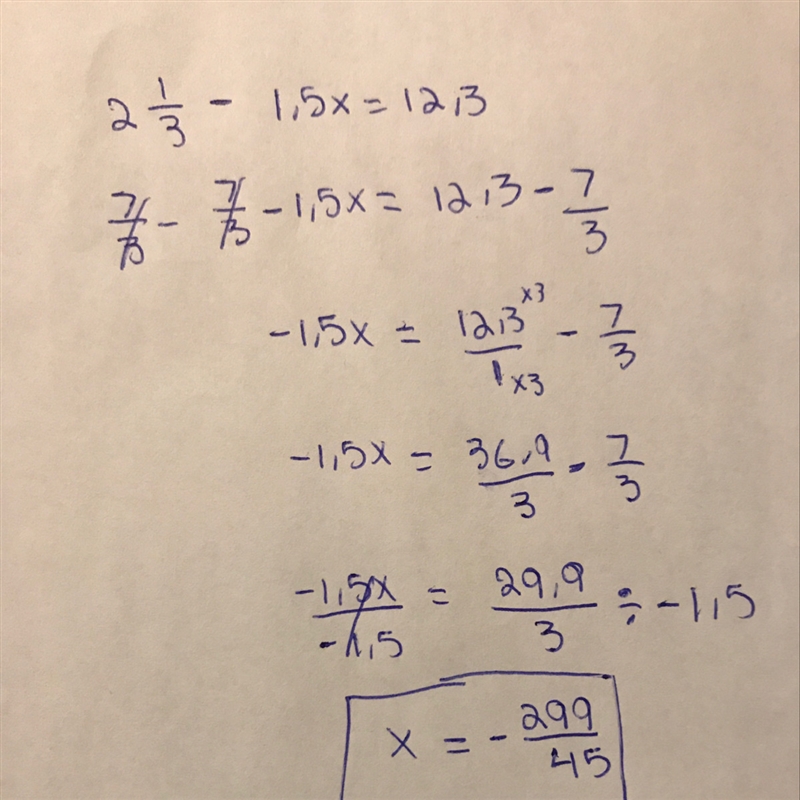 2 1/3 - 1,5x = 12,3
7/3 - 7/3 - 1,5x = 12,3 - 7/3
-1,5x = 12,3 x3 / 1 x3 - 7/3
-1,5x = 36,9/3 - 7/3
-1,5x / -1,5 = 29,9/3 ÷ -1,5
x = - 299/45